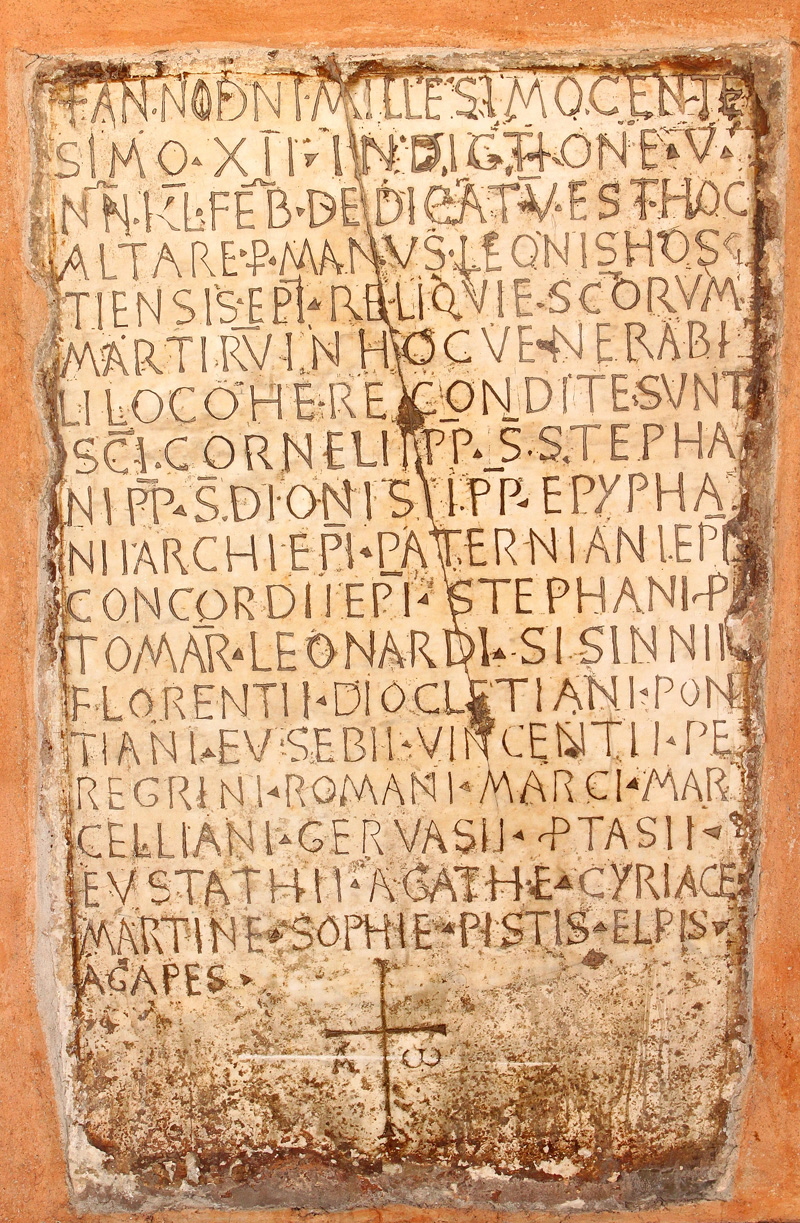 + AN·NO DNI·MILLESIMO CENTE
SIMO·XII·INDICTIONE·V·
NN·KL·FEB·DEDICATV·EST·HOC
ALTARE·P·MANVS·LEONIS HOS
TIENSIS·EPI·RELIQVIE·SCORVM
MARTIRV IN HOC VENERABI
LI LOCO HERE CONDITE SVNT
SCI·CORNELII PP·S·STEPHA
NI PP·S·DIONISII·PP·EPYPHA
NII ARCHIEPI·PATERNIANI·EPI
CONCORDII EPI·STEPHANI·P
TOMAR·LEONARDI·SISINNII
FLORENTII·DIOCLETIANI·PON
TIANI·EVSEBII·VINCENTII·PE
REGRINI·ROMANI·MARCI·MAR
CELLIANI·GERVASII·PTASII·
EVSTATHII·AGATHE·CYRIACE
MARTINE·SOPHIE·PISTIS·ELPIS·
AGAPES·
A ω